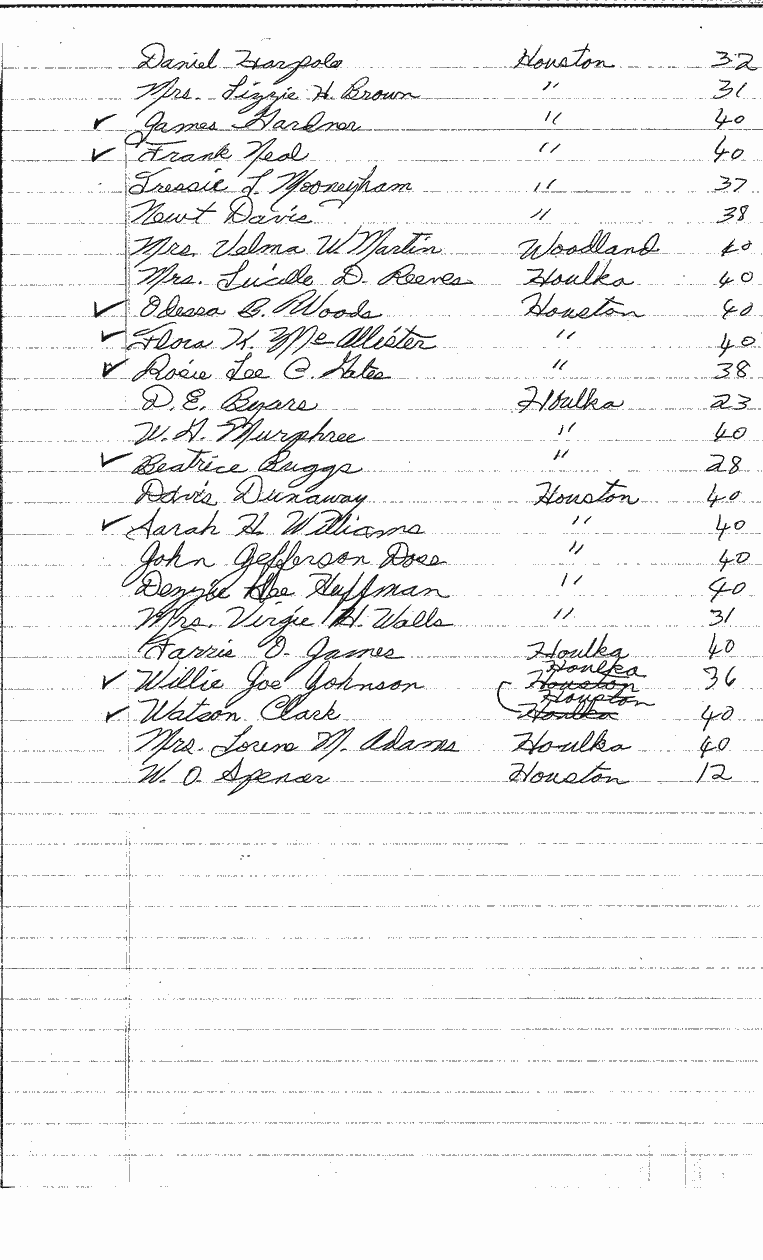 Daniel Harpole Houston 32
Mrs. Lizzie H. Brown " 31
✓ James Gardner " 40
✓ Frank Neal " 40
Tressie L. Mooneyham " 37
Newt Davis " 38
Mrs. Velma W. Martin Woodland 40
Mrs. Lucille D. Reeves Houlka 40
✓ Odessa B. Woods Houston 40
✓ Flora K. McAllister " 40
✓ Rosie Lee C. Gates " 38
D. E. Byars Houlka 23
W. G. Murphree " 40
✓ Beatrice Buggs " 28
Davis Dunaway Houston 40
✓ Sarah H. Williams " 40
John Jefferson Doss " 40
Dezzie Huffman " 40
Mrs. Virgie H. Walls " 31
Farris O. James Houlka 40
Houlka
✓ Willie Joe Johnson Houston 36
Houston
✓ Watson Clark Houlka 40
Mrs. Lorene M. Adams Houlka 40
W. O. Spencer Houston 12